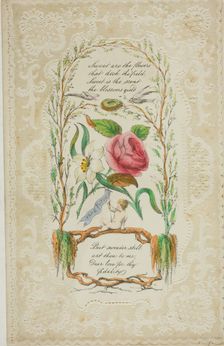 Sweet are the flowers
that deck the field
Sweet is the scent
the blossoms yield
But sweeter still
art thou to me
Dear love for thy
fidelity